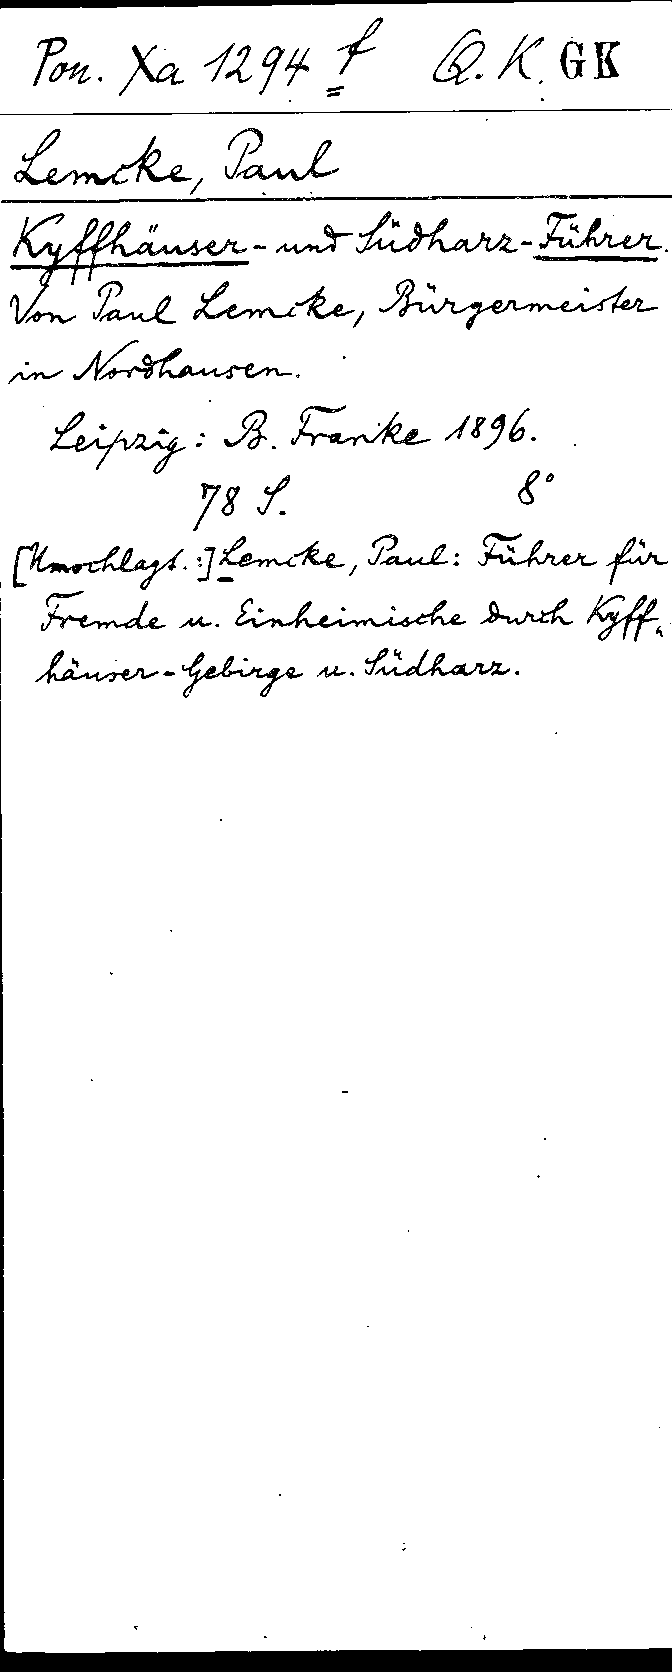 Pon. Xa 1294 f Q. K. GK
Lemcke, Paul
Kyffhäuser- und Südharz-Führer.
Von Paul Lemcke, Bürgermeister
in Nordhausen.
Leipzig: B. Franke 1896.
78 S. 8°
[Umschlagt.:] Lemcke, Paul: Führer für
Fremde u. Einheimische durch Kyff-
häuser-Gebirge u. Südharz.